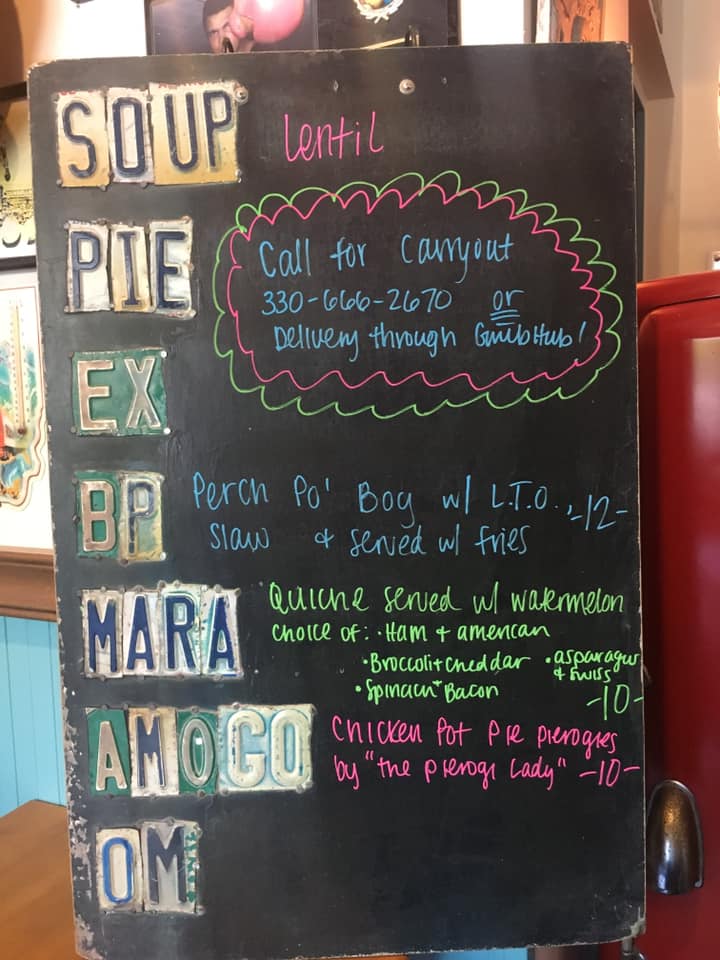 SOUP lentil
PIE
Call for Carryout
330-666-2670 or
Delivery through GrubHub!
EX
BP Perch Po' Boy w/ L.T.O., -12-
slaw & served w/ fries
MARA Quiche served w/ watermelon
choice of: · Ham + american
· Broccoli + cheddar · asparagus
& swiss
· Spinach + Bacon
-10-
AMOCO Chicken Pot Pie pierogies
by "the pierogi Lady" -10-
OM